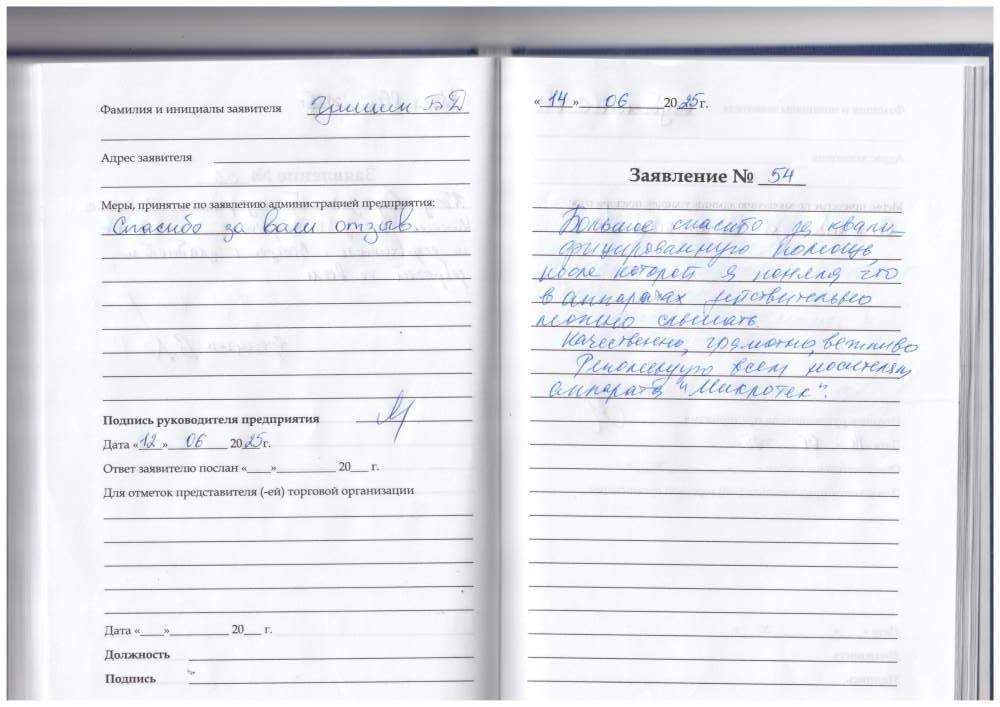 Фамилия и инициалы заявителя Гришин Б Д
Адрес заявителя
Меры, принятые по заявлению администрацией предприятия:
Спасибо за ваш отзыв.
Подпись руководителя предприятия
Дата «12» 06 2025г.
Ответ заявителю послан «___»__________ 20___ г.
Для отметок представителя (-ей) торговой организации
Дата «___»__________ 20___ г.
Должность
Подпись
«14» 06 2025г.
Заявление № 54
Большое спасибо за квали-
фицированную помощь,
после которой я поняла что
в аппаратах действительно
можно слышать.
Качественно, грамотно, вежливо
Рекомендую всем носителям
аппарата "Микротек".